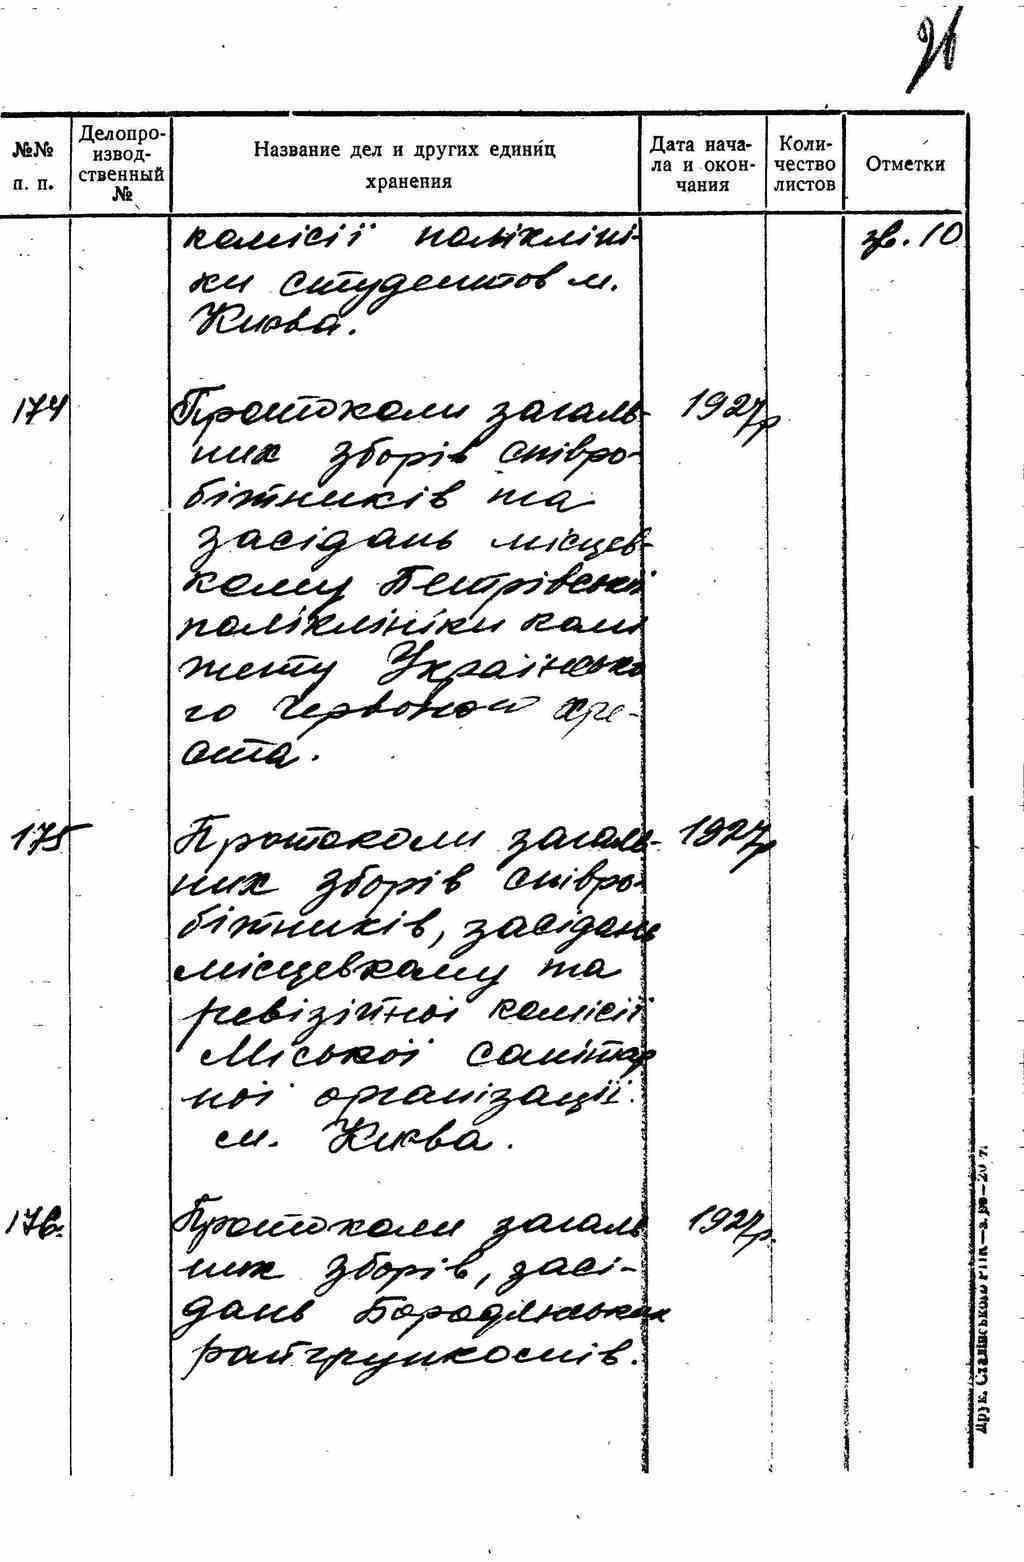 26
№№ п. п.
Делопро-
извод-
ственный
№
Название дел и других единиц
хранения
Дата нача-
ла и окон-
чания
Коли-
чество
листов
Отметки
комісії полікліні-
ки студентов м.
Києва.
зв. 10
174 Протоколи загаль- 1927р
них зборів співро-
бітників та
засідань місцев-
кому Петрівської
поліклініки комі
тету Українсько
го Червоного Хре-
ста.
175 Протоколи загаль- 1927р
них зборів співро-
бітників, засідань
місцевкому та
ревізійної комісії
Міської санітар
ної організації
м. Києва.
176. Протоколи загаль 1927р.
них зборів, засі-
дань Бородянських
райгрупкомів.
Друк. Сталінського РПК